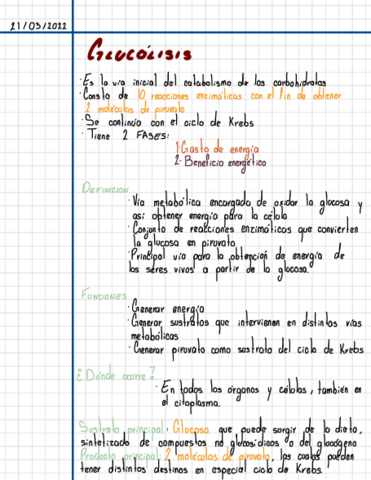 21/03/2022
GLUCÓLISIS
· Es la vía inicial del catabolismo de los carbohidratos
· Consta de 10 reacciones enzimáticas con el fin de obtener
2 moléculas de piruvato
· Se continúa con el ciclo de Krebs
· Tiene 2 FASES:
1· Gasto de energía
2· Beneficio energético
DEFINICIÓN
· Vía metabólica encargada de oxidar la glucosa y
así obtener energía para la célula
· Conjunto de reacciones enzimáticas que convierten
la glucosa en piruvato
· Principal vía para la obtención de energía de
los seres vivos a partir de la glucosa.
FUNCIONES
· Generar energía
· Generar sustratos que intervienen en distintas vías
metabólicas
· Generar piruvato como sustrato del ciclo de Krebs
¿Dónde ocurre?
· En todos los órganos y células, también en
el citoplasma.
Sustrato principal: Glucosa que puede surgir de la dieta,
sintetizado de compuestos no glucosídicos o del glucógeno
Producto principal: 2 moléculas de piruvato, las cuales pueden
tener distintos destinos en especial ciclo de Krebs